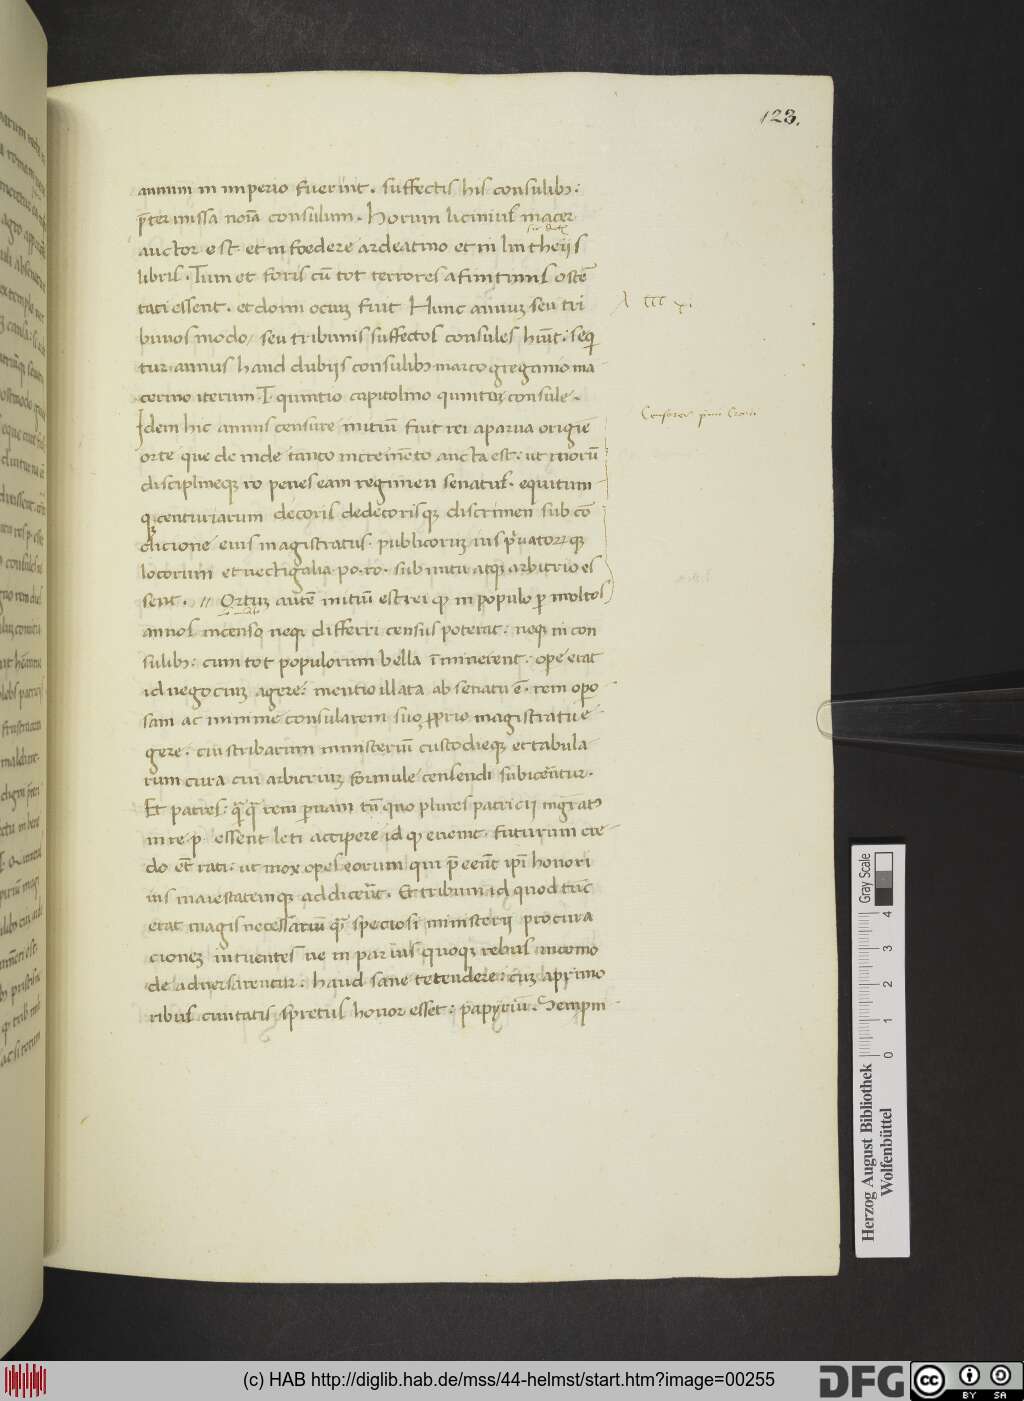 123.
annum in imperio fuerint. suffectis his consulibꝫ:
p̄termissa noīa consulum. Horum licinius macer
auctor est et in foedere ardeatino et in lintheijs
libris. Tum et foris cū tot terrores a finitimis ostē
tati essent. et domi ociuꝫ fuit Hunc annuꝫ seu tri
bunos modo/ seu tribunis suffectos consules hūt. seq̄
tur annus haud dubijs consulibꝫ marco greganio ma
cerino iterum. T quintio capitolino quintuꝫ consule.
Censores
Idem hic annus censure initiū fuit rei a parua origīe
orte que deinde tanto incremēto aucta est. ut morū
disciplineqꝫ ro penes eam regimen senatus. equitum
qꝫ centuriarum decoris dedecorisqꝫ discrimen sub cō
dicione eius magistratus. publicoruꝫ ius p̄uatoꝝqꝫ
locorum et uectigalia po. ro. sub nutu atqꝫ arbitrio es
sent. // Ortuꝫ autē initiū est rei qꝫ in populo ꝑ multos
annos incenso neqꝫ differri census poterat: neqꝫ in con
sulibꝫ: cum tot populorum bella īminerent: operę erat
id negociuꝫ agere: mentio illata ab senatu ē. rem opo
sam ac minime consularem suo ꝓprio magistratu e
gere. cui scribarum ministeriū custodieqꝫ et tabula
rum cura cui arbitriuꝫ formule censendi subiceretur.
Et patres: q̄q̄ rem paruam tn̄ quo plures patricij mgr̄atꝰ
in re p. essent leti accipere id qꝫ euenit. futurum cre
do et̄ rati: ut mox opes eorum qui p̄eent ipi̅ honori
ius maiestatemqꝫ addicerēt. Et tribuni id quod tūc
erat magis necessariū q̄ speciosi ministerij procura
cioneꝫ intuentes ne in paruis quoqꝫ rebus incomo
de aduersarentur: haud sane tetendere: cuꝫ a primo
ribus ciuitatis spretus honor esset: papyriū. Sempni
Gray Scale
0 1 2 3 4
Herzog August Bibliothek
Wolfenbüttel
(c) HAB http://diglib.hab.de/mss/44-helmst/start.htm?image=00255
DFG
cc BY SA